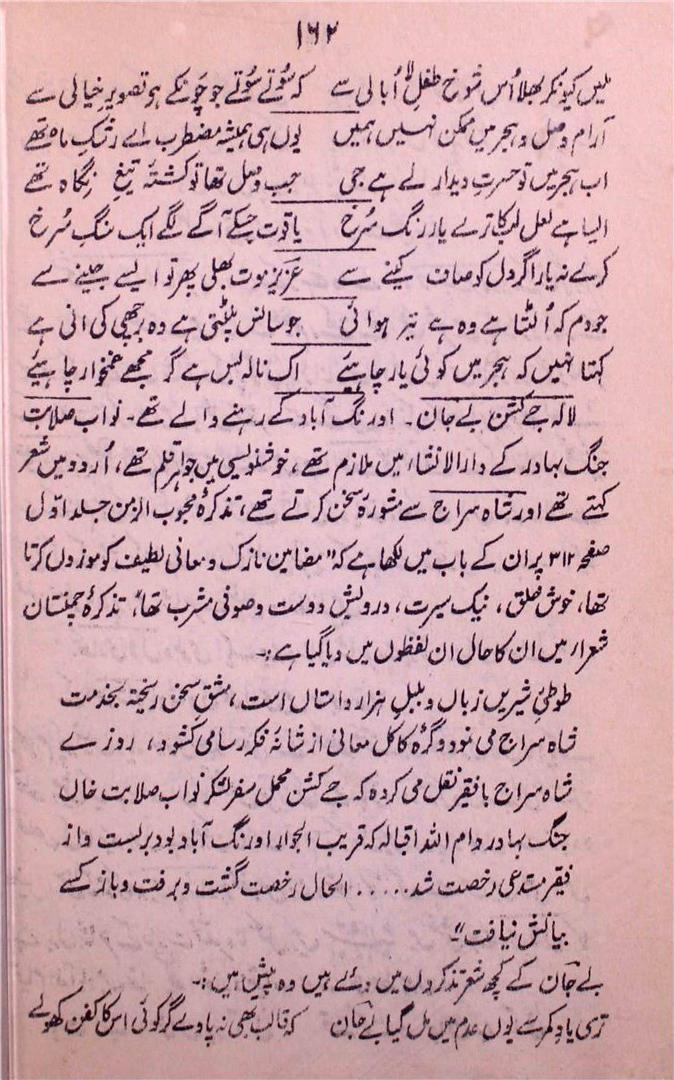 ۱۶۲
ملیں کیونکر بھلا اُس شوخ طفلِ لا اُبالی سے کہ سُوتے سُوتے جو چَونکے ہو تصویرِ خیالی سے
آرام وصل و ہجر میں ممکن نہیں ہمیں یوں ہی ہمیشہ مضطرب اے رشکِ ماہ تھے
اب ہجر میں تو حسرتِ دیدار لے ہے جی جب وصل تھا تو کشتۂ تیغِ نِگاہ تھے
ایسا ہے لعلِ لب کا ترے یار رنگ سُرخ یاقوت جسکے آگے لگے ایک سنگ سُرخ
کرے نہ یار اگر دل کو صاف کینے سے عزیز موت بھلی پھر تو ایسے جینے سے
جو دم کہ اُلٹا ہے وہ ہے تیر ہوائی جو سانس پلٹتی ہے وہ برچھی کی انی ہے
کہتا نہیں کہ ہجر میں کوئی یار چاہیئے اک نالہ بس ہے گر مجھے غمخوار چاہیئے
لالہ جے کشن بے جان۔ اورنگ آباد کے رہنے والے تھے۔ نواب صلابت
جنگ بہادر کے دارالانشاء میں ملازم تھے، خوشنویسی میں جواہر قلم تھے، اُردو میں شعر
کہتے تھے اور شاہ سراج سے مشورۂ سخن کرتے تھے، تذکرۂ محبوب الزمن جلد اوّل
صفحہ ۳۱۲ پر ان کے باب میں لکھا ہے کہ "مضامین نازک و معانی لطیف کو موزوں کرتا
تھا، خوش خلق، نیک سیرت، درویش دوست و صوفی مشرب تھا"، تذکرۂ چمنستان
شعراء میں ان کا حال ان لفظوں میں دیا گیا ہے:۔
طوطیٔ شیریں زباں و بلبلِ ہزار داستاں است، مشقِ سخن ریختہ بخدمت
شاہ سراج می نمود و گرہ کاکل معانی از شانۂ فکر رسا می کشود، روزے
شاہ سراج با فقیر نقل می کردہ کہ جے کشن محمل سفر لشکر نواب صلابت خاں
جنگ بہادر دام اللہ اقبالہ کہ قریب الجوار اورنگ آباد بود بربست و از
فقیر مستدعی رخصت شد..... الحال رخصت گشت و برفت و باز کسے
بیانش نیافت"۔
بے جان کے کچھ شعر تذکروں میں دئے ہیں وہ پیش ہیں:۔
تری یادِ کمر سے یوں عدم میں مل گیا بے جان کہ قالب بھی نہ پاوے گر کوئی اس کا کفن کھولے